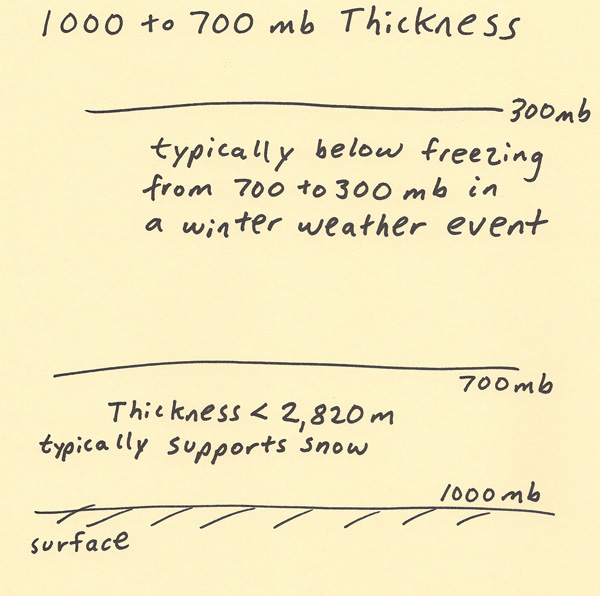 1000 to 700 mb Thickness
300mb
typically below freezing
from 700 to 300 mb in
a winter weather event
700mb
Thickness < 2,820 m
typically supports snow
1000mb
surface